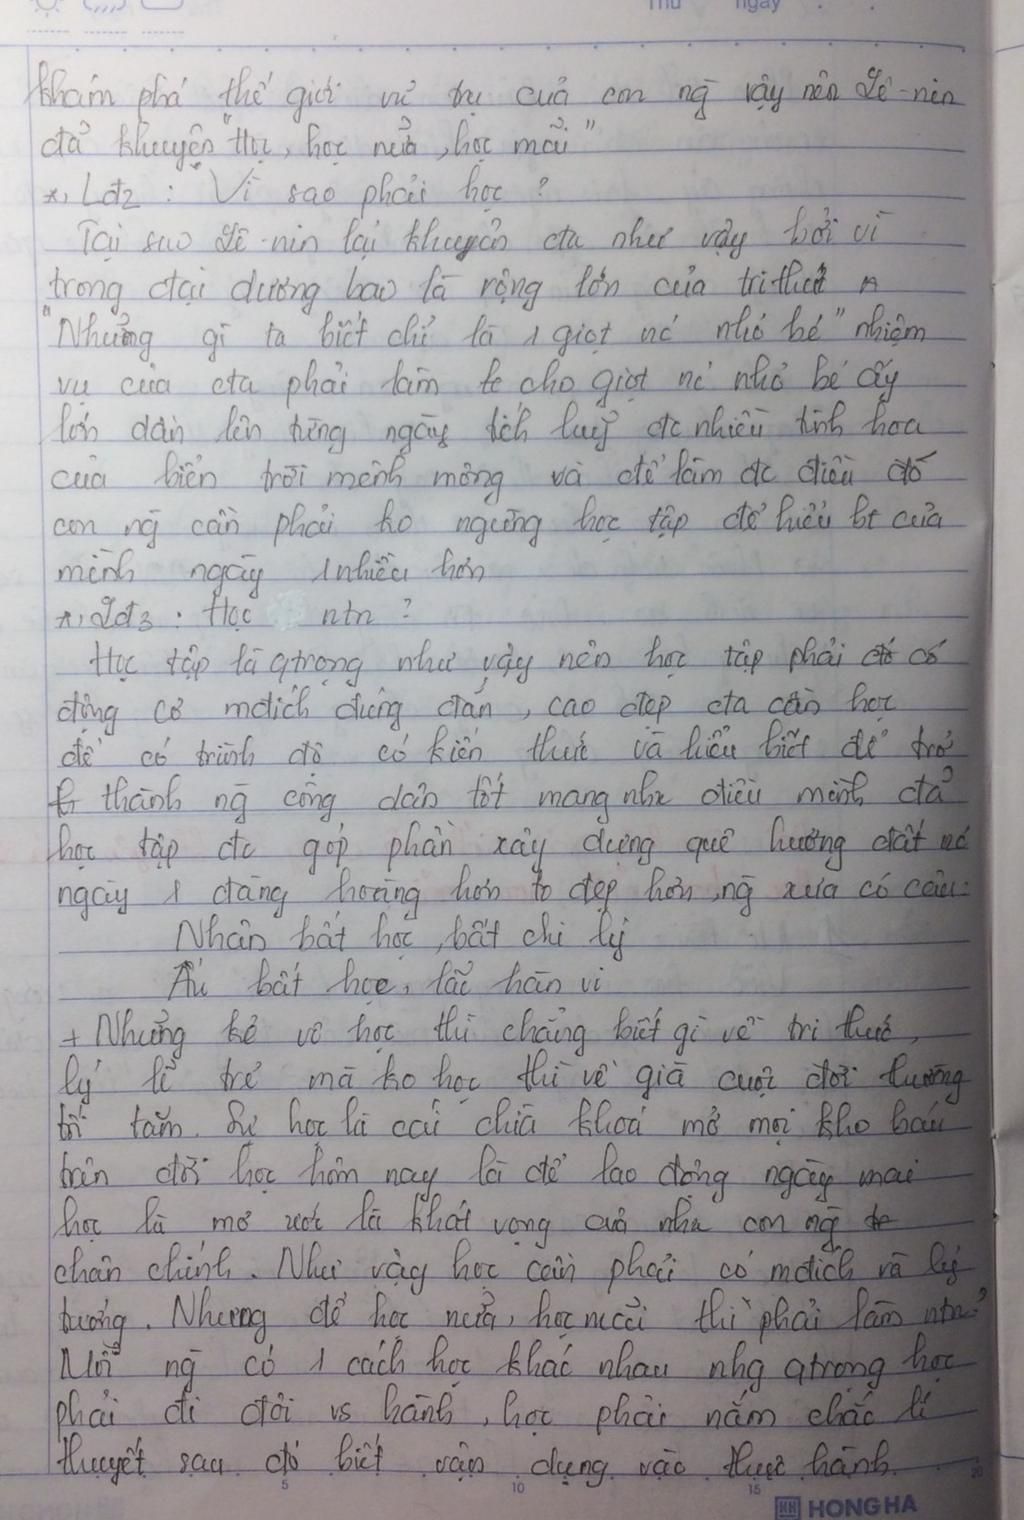 Thứ ngày
khám phá thế giới vũ trụ của con ng vậy nên Lê-nin
đã khuyên "Học, học nữa, học mãi"
*, Lđ2 : Vì sao phải học ?
Tại sao Lê-nin lại khuyên cta như vậy bởi vì
trong đại dương bao la rộng lớn của tri thức
"Những gì ta biết chỉ là 1 giọt nc nhỏ bé" nhiệm
vụ của cta phải làm cho giọt nc nhỏ bé ấy
lớn dần lên từng ngày tích luỹ đc nhiều tinh hoa
của biển trời mênh mông và để làm đc điều đó
con ng cần phải ko ngừng học tập để hiểu bt của
mình ngày 1 nhiều hơn
*, Lđ3 : Học ntn ?
Học tập là qtrọng như vậy nên học tập phải có
động cơ mđích đúng đắn, cao đẹp cta cần học
để có trình độ có kiến thức và hiểu biết để trở
thành ng công dân tốt mang nhx điều mình đã
học tập đc góp phần xây dựng quê hương đất nc
ngày 1 đàng hoàng hơn to đẹp hơn, ng xưa có câu:
Nhân bất học, bất chi lý
Ấu bất học, lão hàn vi
+ Những kẻ vô học thì chẳng biết gì về tri thức,
lý lẽ trẻ mà ko học thì về già cuộc đời thường
tối tăm. Sự học là cái chìa khoá mở mọi kho báu
trên đời học hôm nay là để lao động ngày mai
học là mơ ước là khát vọng của nhx con ng
chân chính. Như vậy học cần phải có mđích và lý
tưởng. Nhưng để học nữa, học mãi thì phải làm ntn?
Mỗi ng có 1 cách học khác nhau nhg qtrọng học
phải đi đôi vs hành, học phải nắm chắc lí
thuyết sau đó biết vận dụng vào thực hành.
5 10 15 20
HH HONG HA